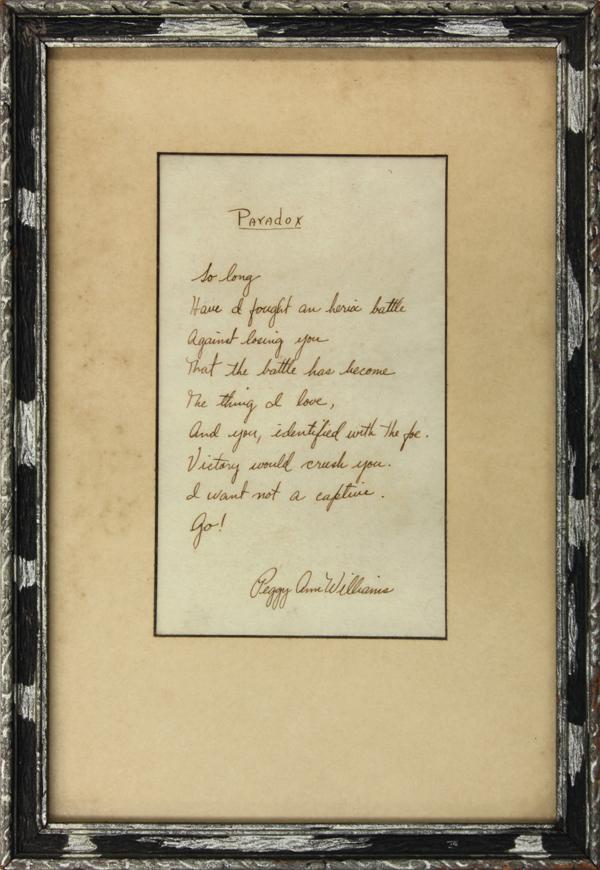 Paradox
So long
Have I fought an heroic battle
Against losing you
That the battle has become
The thing I love,
And you, identified with the foe.
Victory would crush you.
I want not a captive.
Go!
Peggy Ann Williams